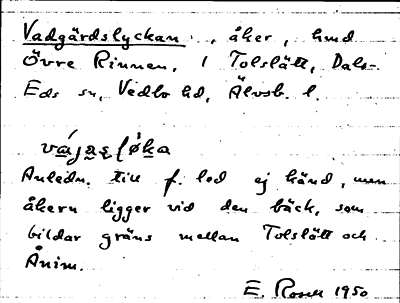 Vadgärdslyckan, åker, hmd
Övre Rinnen, 1 Tolslätt, Dals-
Eds sn, Vedbo hd, Älvsb. l.
Anledn. till f. led ej känd, men
åkern ligger vid den bäck, som
bildar gräns mellan Tolslätt och
Ånim.
E. Rosell 1950